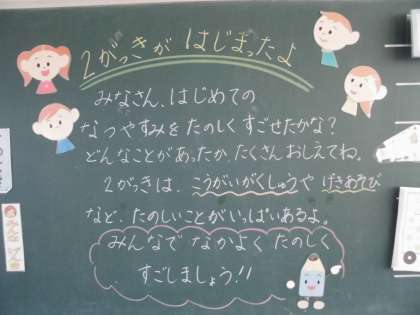 2がっきが はじまったよ
みなさん、はじめての
なつやすみを たのしく すごせたかな?
どんなことが あったか、たくさん おしえてね。
2がっきは、こうがいがくしゅうや げきあそび
など、たのしいことが いっぱいあるよ。
みんなで なかよく たのしく
すごしましょう!!